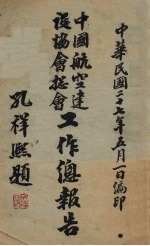 中華民國二十七年五月一日編印
中國航空建
設協會總會
工作總報告
孔祥熙題